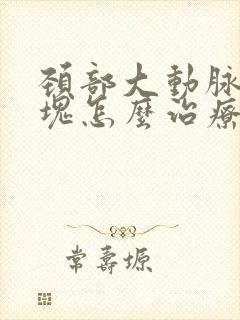 頚部大動脉
塊怎麼治療
常壽塬